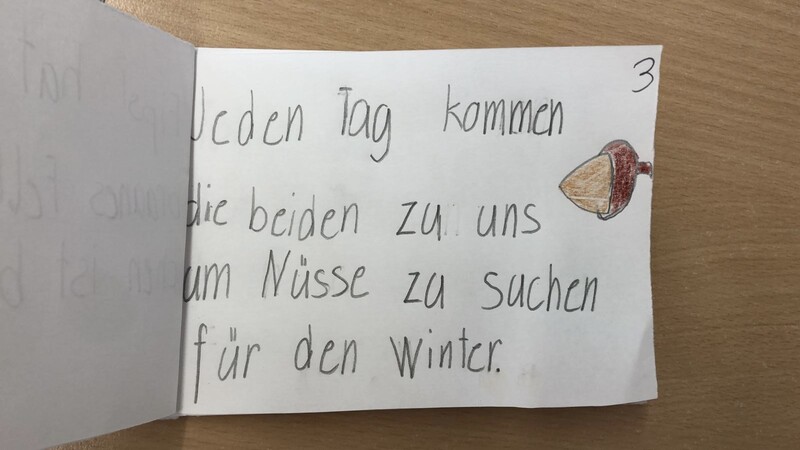 3
Jeden Tag kommen
die beiden zu uns
um Nüsse zu suchen
für den Winter.